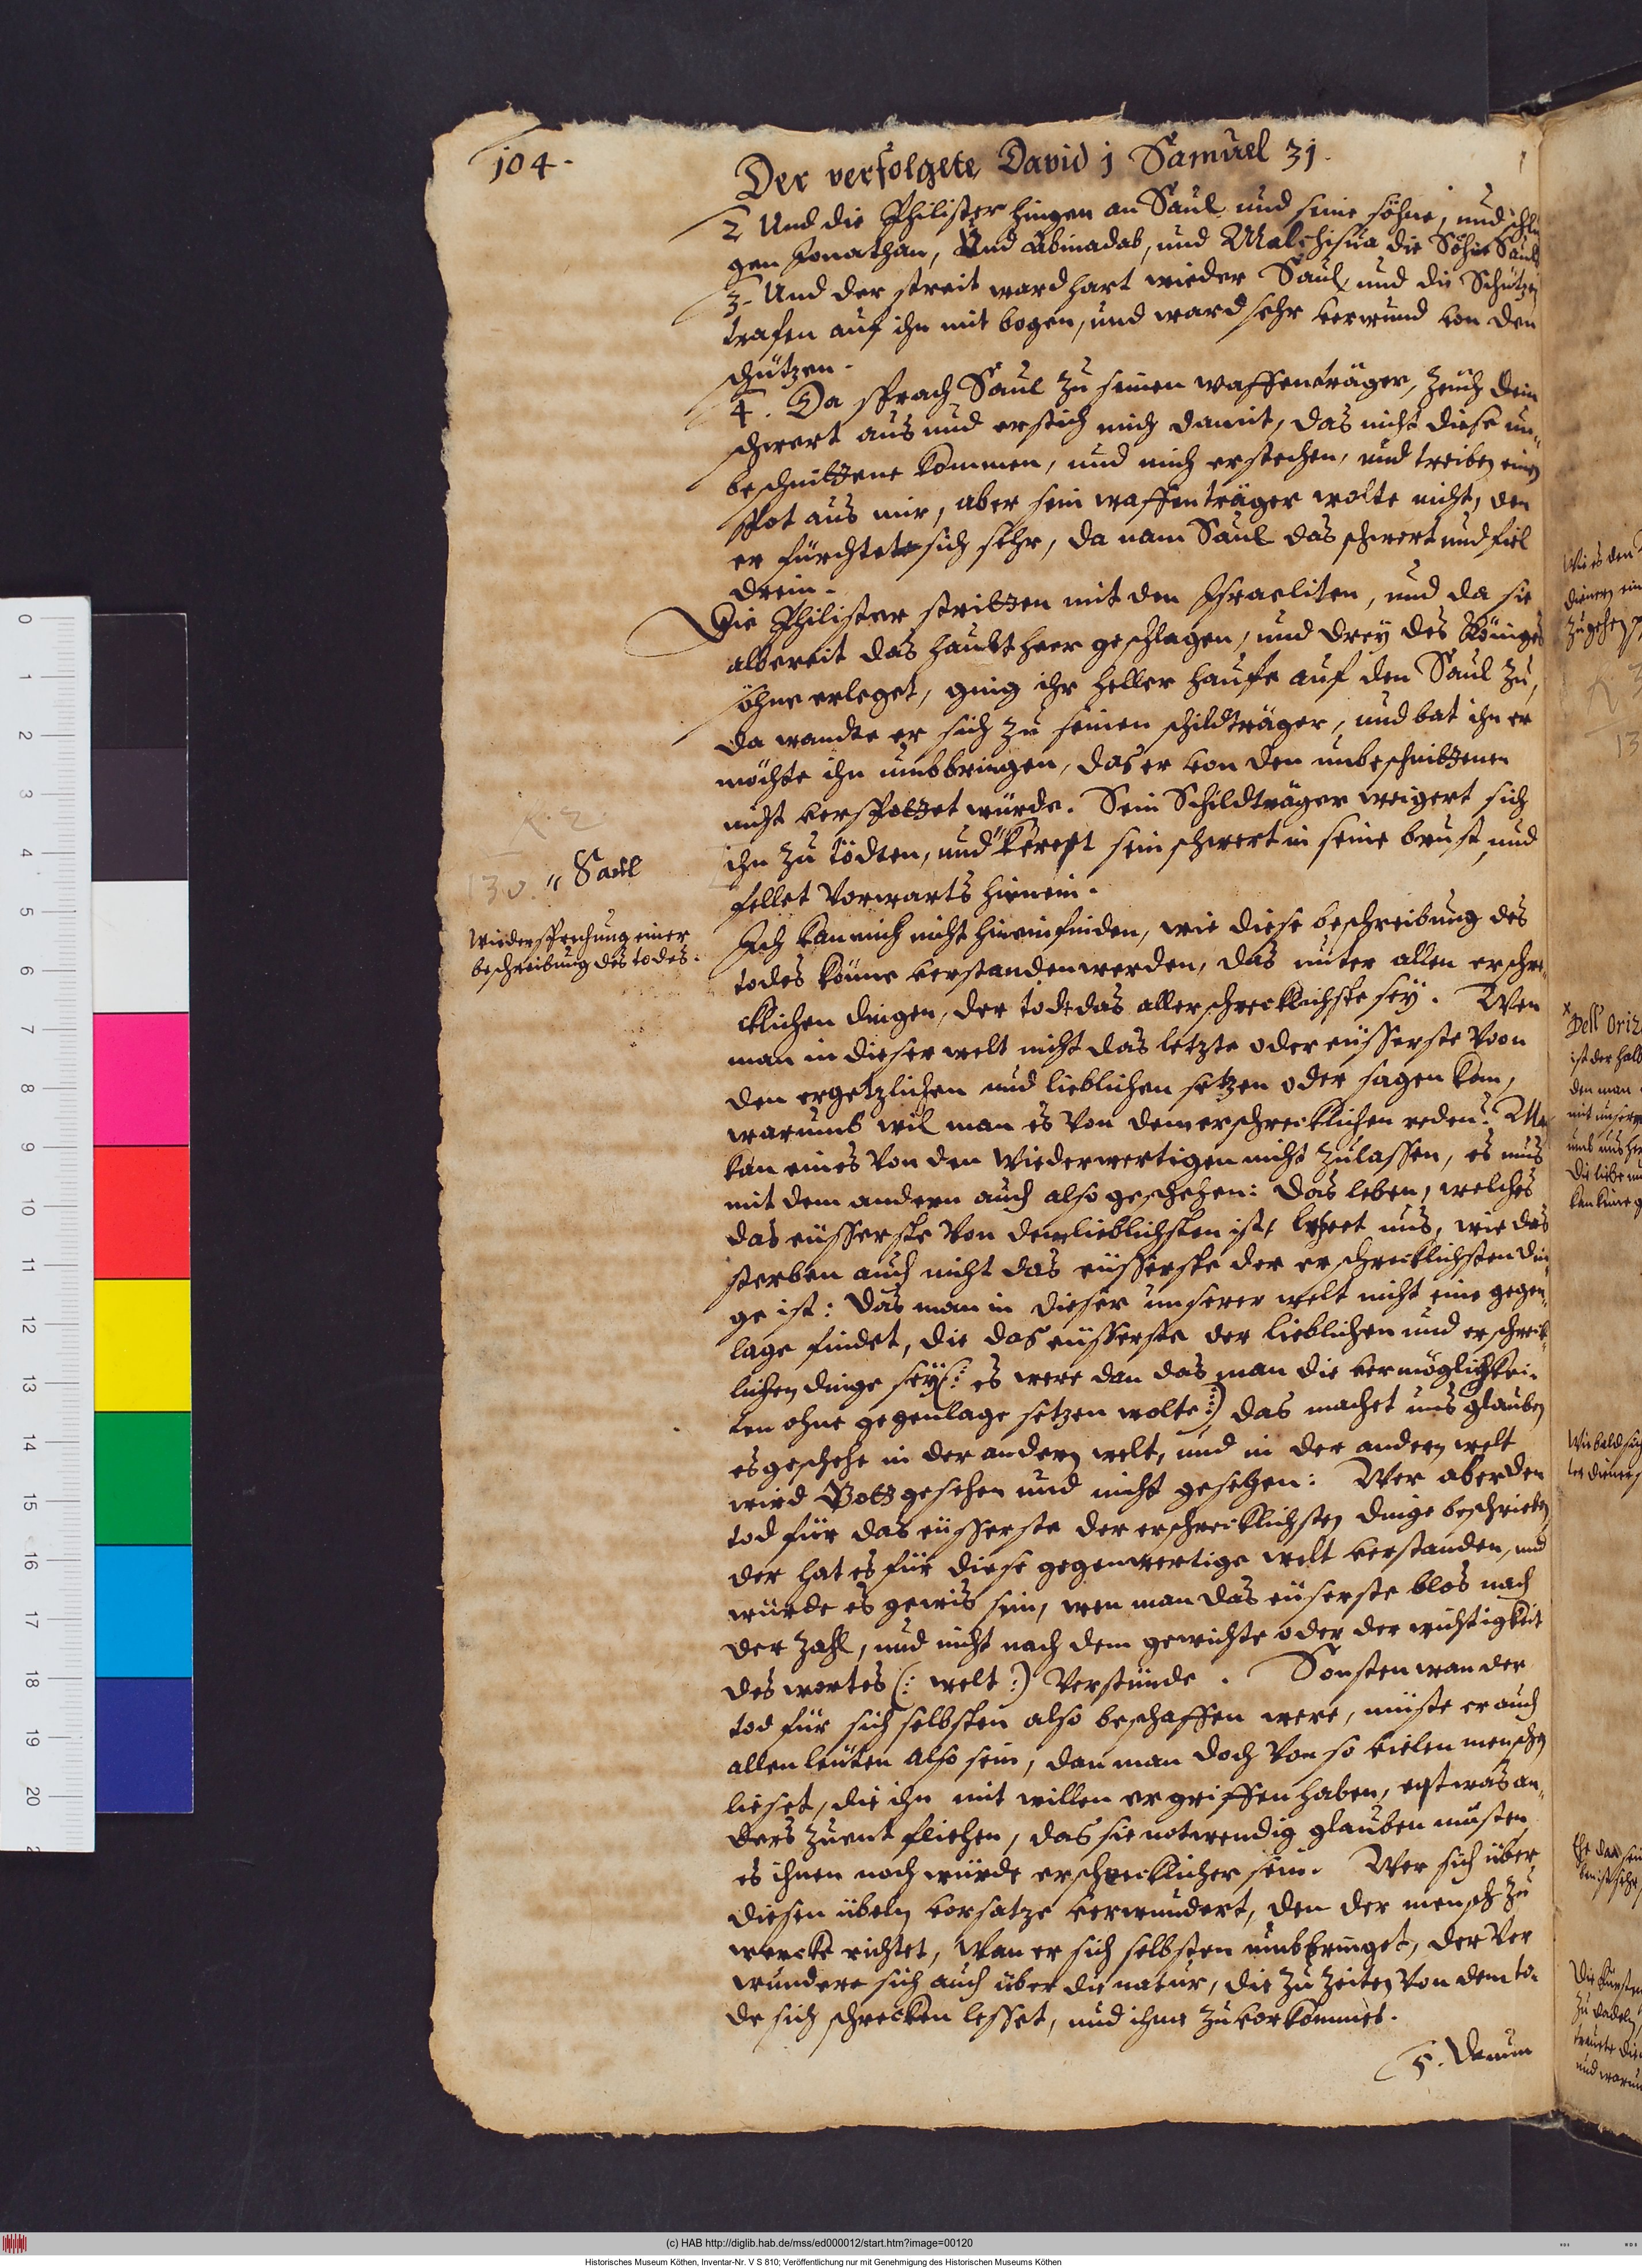 104.
Der verfolgete David 1 Samuel 31.
2 Und die Philister hingen an Saul und seine söhne, und schlu
gen Jonathan, Und Abinadab, und Malchisua die Söhne Sauls
3. Und der streit ward hart wieder Saul, und die Schützen
trafen auf ihn mit bogen, und ward sehr verwund von den
schützen.
4. Da sprach Saul zu seinen waffenträger, zeuch dein
schwert aus und erstich mich damit, das nicht diese un„
beschnittene kommen, und mich erstechen, und treiben einen
spot aus mir, aber sein waffenträger wolte nicht, den
er fürchtete sich sehr, da nam Saul das schwert und fiel
drein.
Die Philister stritten mit den Israeliten, und da sie
albereit das haubt heer geschlagen, und drey des Königes
söhne erleget, ging ihr heller haufe auf den Saul zu,
da wandte er sich zu seinen schildträger, und bat ihn er
möchte ihn umbbringen, das er von den unbeschnittenen
nicht verspottet würde. Sein Schildträger weigert sich
ihn zu tödten, und "kerept sein schwert in seine brust, und
fellet vorwarts hienein.
K. 2.
130. " Saul
Wiedersprechung einer
beschreibung des todes.
Ich kan mich nicht hineinfinden, wie diese beschreibung des
todes könne verstanden werden, das unter allen erschre„
cklichen dingen, der tod das allerschrecklichste sey. Wen
man in dieser welt nicht das letzte oder eüsserste von
den ergetzlichen und lieblichen setzen oder sagen kan,
warumb wil man es von dem erschrecklichen reden? Ma
kan eines von den wiederwertigen nicht zulassen, es mus
mit dem andern auch also geschehen: das leben, welches
das eüsserste von dem lieblichsten ist, lehret uns, wie das
sterben auch nicht das eüsserste der erschrecklichsten din„
ge ist: das man in dieser unserer welt nicht eine gegen„
lage findet, die das eüsserste der lieblichen und erschreck„
lichen dinge sey (: es were dan das man die vermöglichkei„
ten ohne gegenlage setzen wolte :) das machet uns glauben
es geschehe in der andern welt, und in der andern welt
wird Gott gesehen und nicht gesehen: Wer aber den
tod für das eüsserste der erschrecklichsten dinge beschrieben
der hat es für diese gegenwertige welt verstanden, und
würde es gewis sein, wen man das eüserste blos nach
der zahl, und nicht nach dem gewichte oder der wichtigkeit
des wortes (: welt :) verstünde. Sonsten wan der
tod für sich selbsten also beschaffen were, müste er auch
allen leuten also sein, dan man doch von so vielen menschen
lieset, die ihn mit willen ergriffen haben, etwas an„
ders zuentfliehen, das sie notwendig glauben musten
es ihnen noch würde erschrecklicher sein. Wer sich über
diesen übeln vorsatze verwundert, den der mensch zu
wercke richtet, wan er sich selbsten umbbringet, der ver
wundere sich auch über die natur, die zu zeiten von dem to„
de sich schrecken lesset, und ihme zuvorkommet.
5. Darum
Wie es den
dienern ein
zugehen
Dell' Oriz
ist der halb
den man
mit unsern
Die liebe
kan keine g
Wie bald sich
der diener
Ehe das sein
Die Fürsten
zu
und warum
0
1
2
3
4
5
6
7
8
9
10
11
12
13
14
15
16
17
18
19
20
(c) HAB http://diglib.hab.de/mss/ed000012/start.htm?image=00120
Historisches Museum Köthen, Inventar-Nr. V S 810; Veröffentlichung nur mit Genehmigung des Historischen Museums Köthen